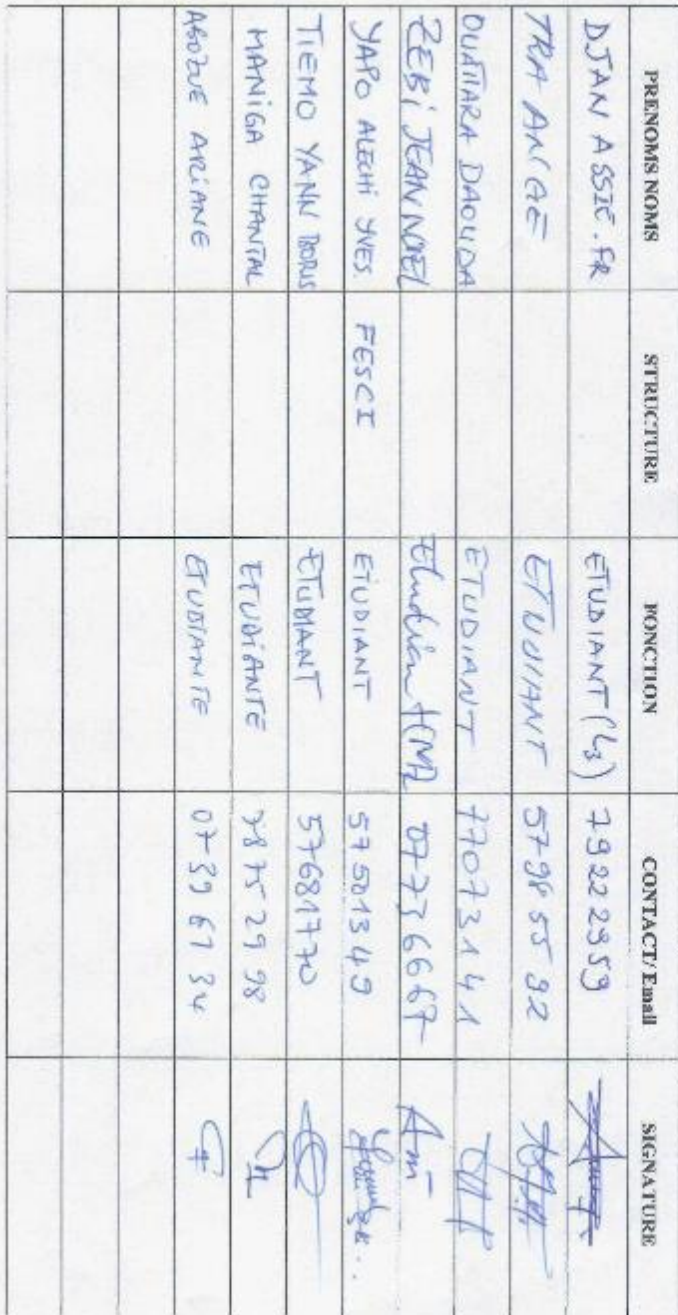 PRENOMS NOMS STRUCTURE FONCTION CONTACT/ Email SIGNATURE
DJAN ASSIE. FR ETUDIANT (L3) 79222959
TRA ANGE ETUDIANT 57985592
OUATTARA DAOUDA ETUDIANT 77073141
ZEBI JEAN NOEL Etudiant 07736667
YAPO ALECHI YVES. FESCI ETUDIANT 57501349
TIEMO YANN BORIS ETUDIANT 57681770
MANIGA CHANTAL ETUDIANTE 78752998
ABOZUE ARIANE ETUDIANTE 07396134